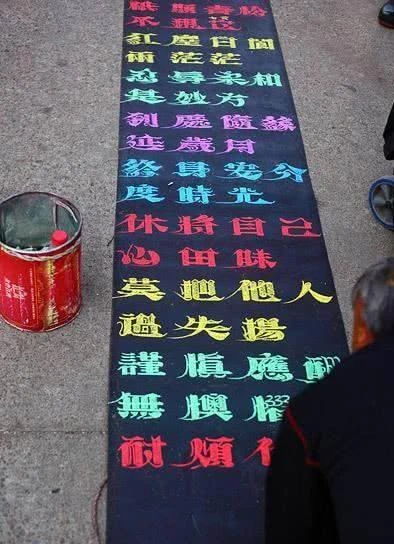 青松
不
紅塵白
兩茫茫
忍辱柔和
是妙方
到處隨緣
延歲月
終身安分
度時光
休將自己
心田昧
莫把他人
過失揚
謹慎應
無懊惱
耐煩